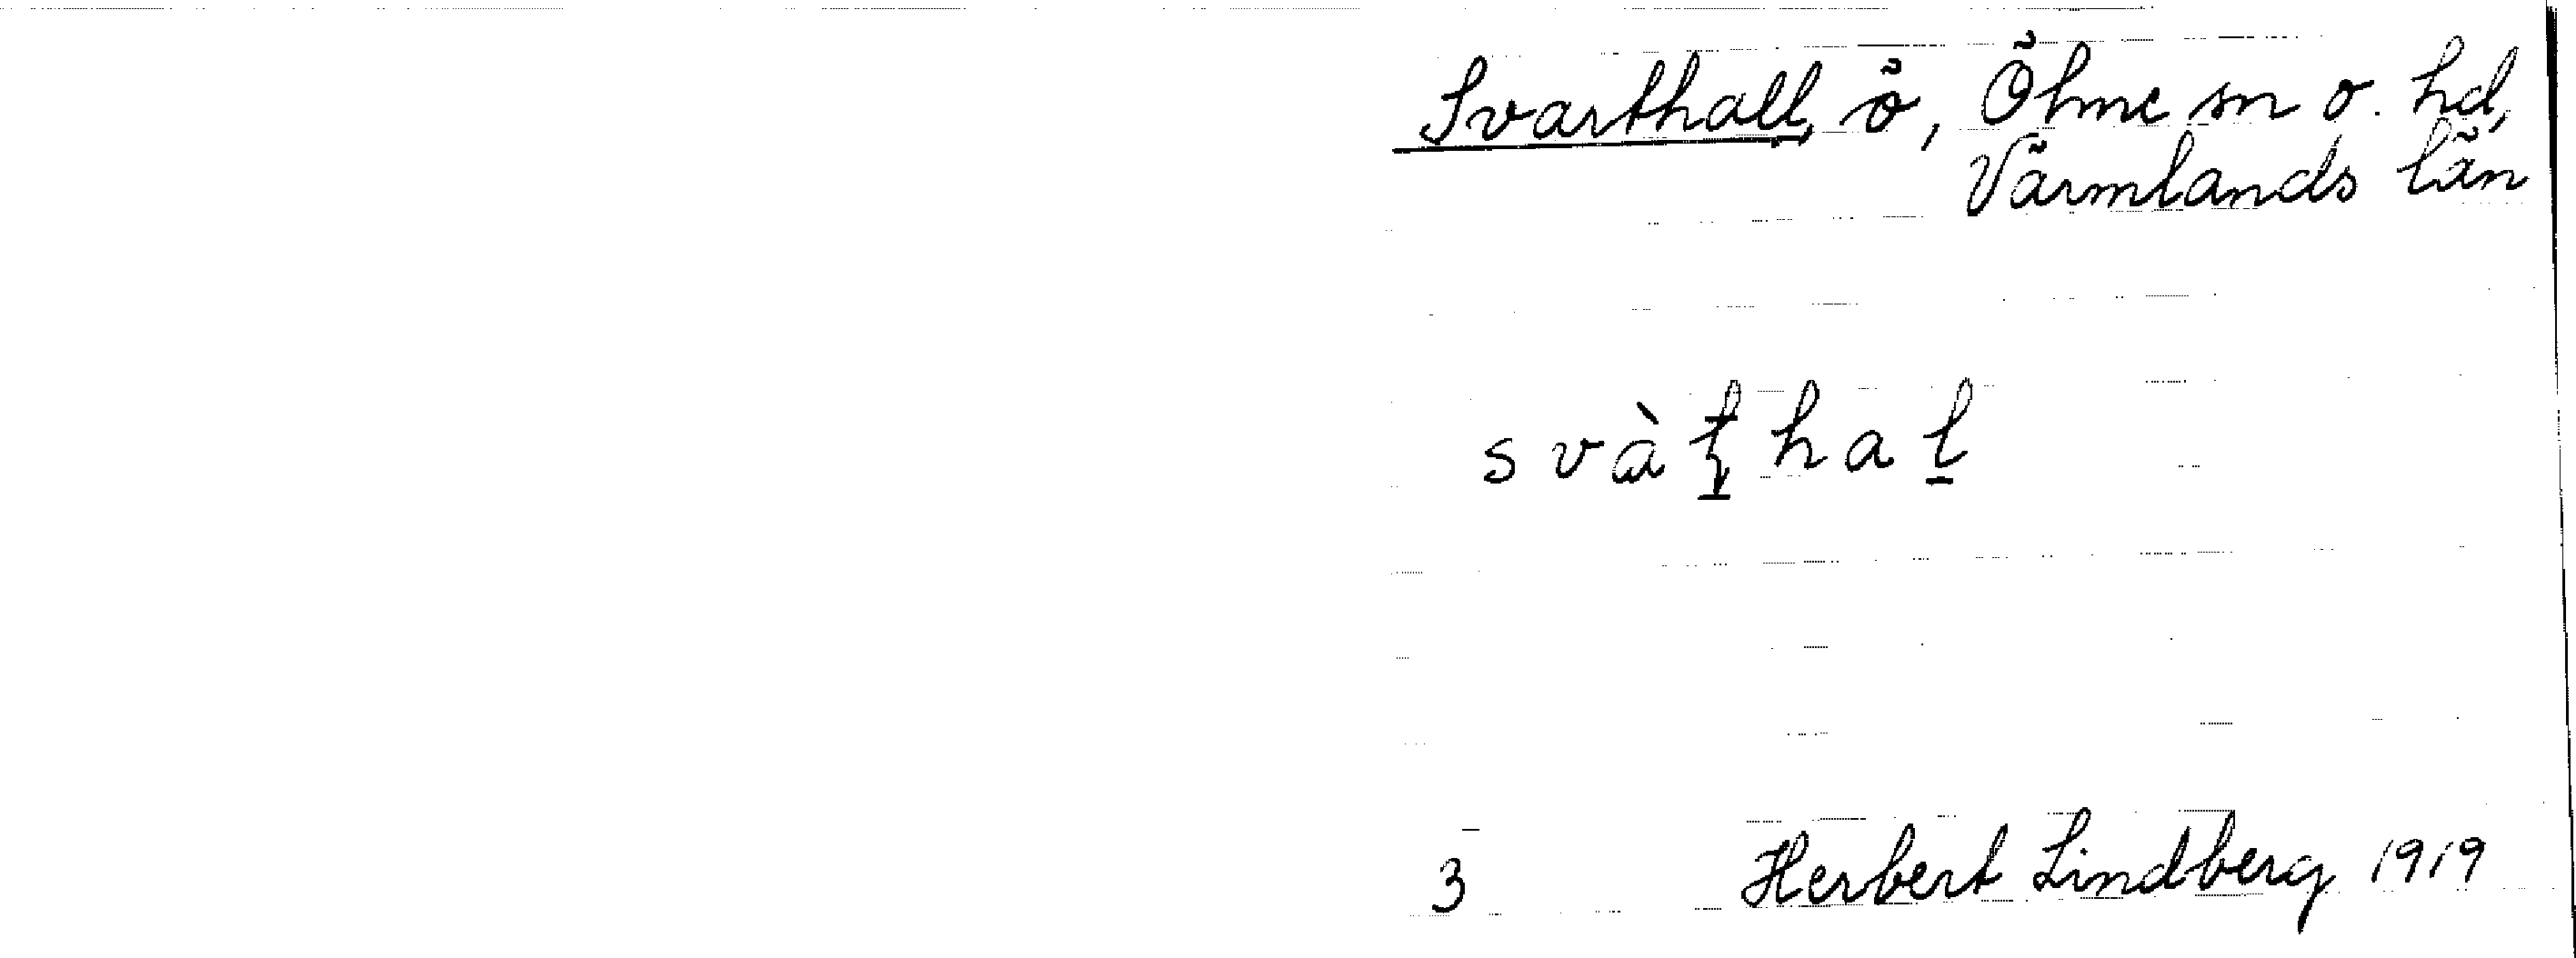 Svarthall, ö, Ölme sn o. hd,
Värmlands län
svàt̠hal̠
3 Herbert Lindberg 1919